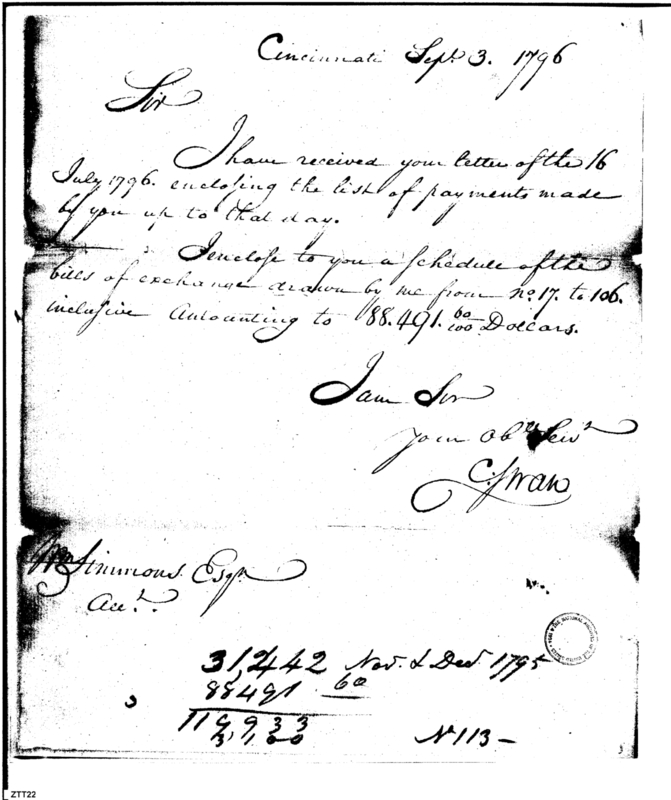 Cincinnati Sept. 3. 1796
Sir
I have received your letter of the 16
July 1796. enclosing the list of payments made
by you up to that day.
I enclose to you a schedule of the
bills of exchange drawn by me from No. 17. to 106.
inclusive Amounting to 88.491. 60/100 Dollars.
I am Sir
Your Obt. Servt
C: Swan
Wm Simmons Esqr.
Acct.
31,442 Nov. & Decr. 1795
88491 60
119933
3,100
No 113 -
ZTT22